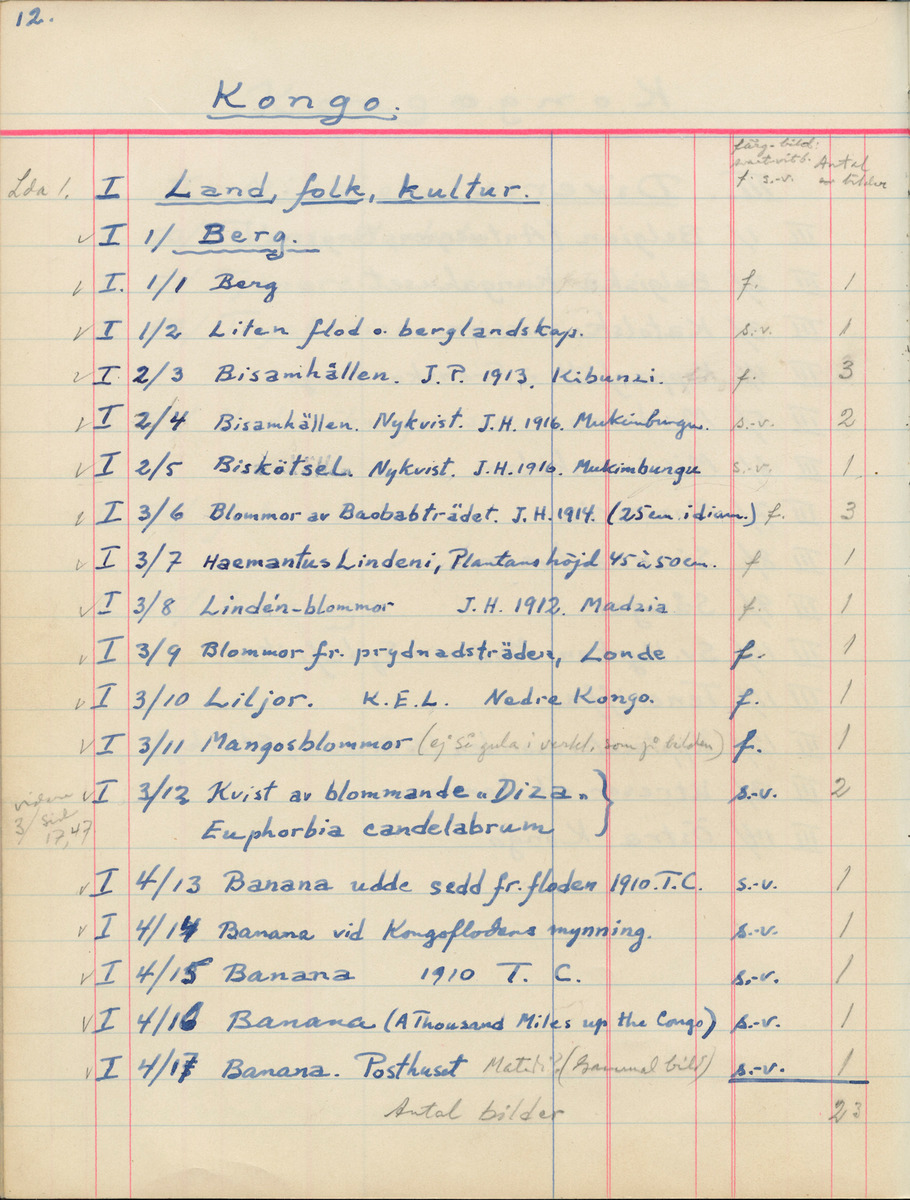 12.
Kongo.
färg. bild:
svart vitb. Antal
f. s.-v. bilder
Lda 1. I Land, folk, kultur.
✓ I 1/ Berg.
✓ I. 1/1 Berg f. 1
✓ I 1/2 Liten flod o. berglandskap. s.-v. 1
✓ I 2/3 Bisamhällen. J.P. 1913. Kibunzi. f. 3
✓ I 2/4 Bisamhällen. Nykvist. J.H. 1916. Mukimbungu. s.-v. 2
✓ I 2/5 Biskötsel. Nykvist. J.H. 1916. Mukimbungu s.-v. 1
✓ I 3/6 Blommor av Baobabträdet. J.H. 1914. (25 cm. i diam.) f. 3
✓ I 3/7 Haemantus Lindeni, Plantans höjd 45 à 50 cm. f 1
✓ I 3/8 Lindén-blommor J.H. 1912. Madzia f. 1
✓ I 3/9 Blommor fr. prydnadsträden, Londe f. 1
✓ I 3/10 Liljor. K.E.L. Nedre Kongo. f. 1
✓ I 3/11 Mangosblommor (ej så gula i verkl. som på bilden) f. 1
✓ I 3/12 Kvist av blommande "Diza" s.-v. 2
Euphorbia candelabrum
3/ sid
17, 47
✓ I 4/13 Banana udde sedd fr. floden 1910. T.C. s.-v. 1
✓ I 4/14 Banana vid Kongoflodens mynning. s.-v. 1
✓ I 4/15 Banana 1910 T. C. s.-v. 1
✓ I 4/16 Banana (A Thousand Miles up the Congo) s.-v. 1
✓ I 4/17 Banana. Posthuset Matadi? (Gammal bild) s.-v. 1
Antal bilder 23